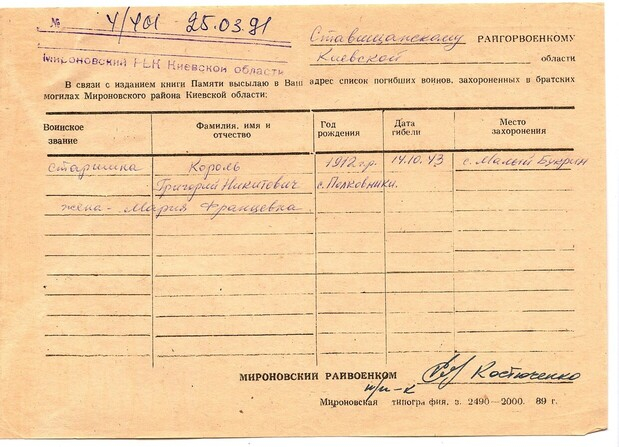 № 4/401 25.03.91
Мироновский РВК Киевской области
Ставищанскому РАЙГОРВОЕНКОМУ
Киевской области
В связи с изданием книги Памяти высылаю в Ваш адрес список погибших воинов, захороненных в братских
могилах Мироновского района Киевской области:
Воинское звание
Фамилия, имя и отчество
Год рождения
Дата гибели
Место захоронения
старшина Король 1912 г.р. 14.10.43 с. Малый Букрин
Григорий Никитович с. Полковники.
жена - Мария Францевна
МИРОНОВСКИЙ РАЙВОЕНКОМ Костюченко
п/п-к
Мироновская типография, з. 2490—2000. 89 г.